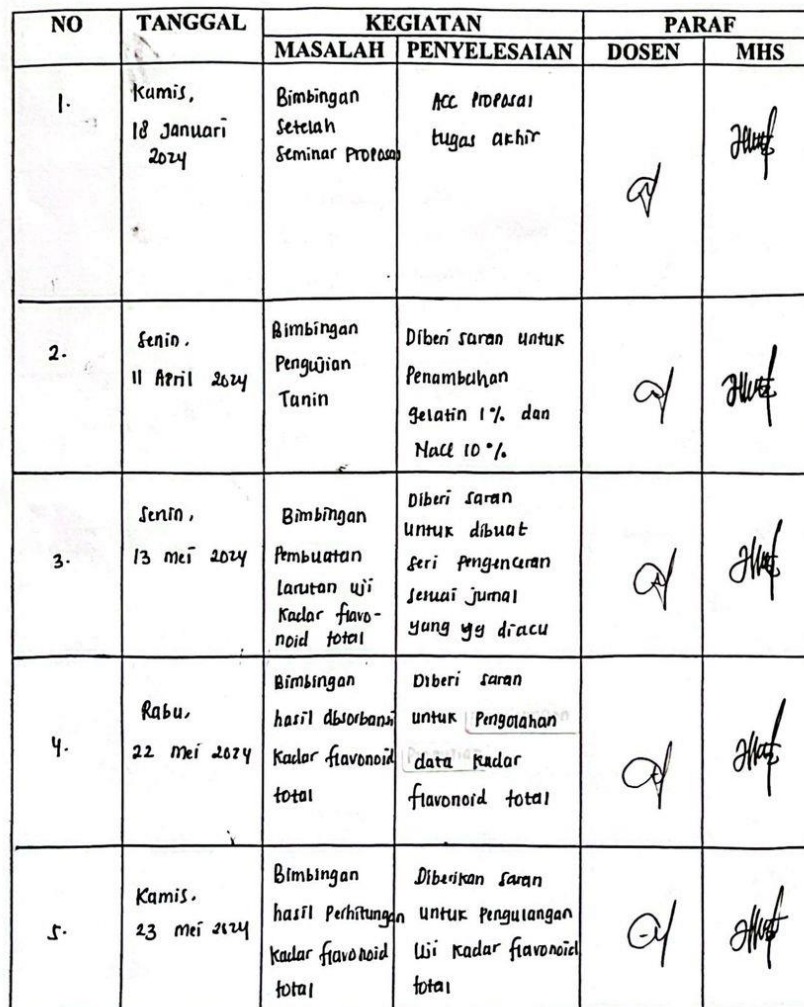 NO TANGGAL KEGIATAN PARAF
MASALAH PENYELESAIAN DOSEN MHS
1.
Kamis,
18 Januari
2024
Bimbingan
Setelah
Seminar Proposal
Acc Proposal
tugas akhir
2.
Senin,
11 April 2024
Bimbingan
Pengujian
Tanin
Diberi saran untuk
Penambahan
gelatin 1% dan
Nacl 10%
3.
Senin,
13 Mei 2024
Bimbingan
Pembuatan
larutan uji
Kadar flavo-
noid total
Diberi saran
untuk dibuat
seri Pengenceran
sesuai jurnal
yang yg diacu
4.
Rabu,
22 Mei 2024
Bimbingan
hasil absorbansi
Kadar flavonoid
total
Diberi saran
untuk Pengolahan
data kadar
flavonoid total
5.
Kamis.
23 Mei 2024
Bimbingan
hasil Perhitungan
kadar flavonoid
total
Diberikan saran
untuk Pengulangan
Uji kadar flavonoid
total